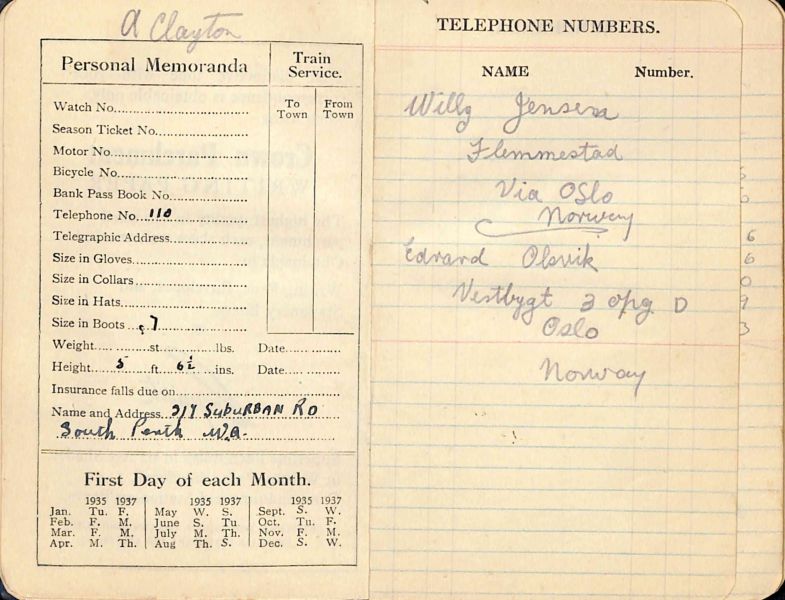 A Clayton
Personal Memoranda
Train Service.
To Town
From Town
Watch No.
Season Ticket No.
Motor No.
Bicycle No.
Bank Pass Book No.
Telephone No. 110
Telegraphic Address
Size in Gloves
Size in Collars
Size in Hats
Size in Boots 7
Weight st lbs. Date
Height 5 ft 6½ ins. Date
Insurance falls due on
Name and Address SubuRBAN RD
South Perth W.A.
First Day of each Month.
1935 1937 1935 1937 1935 1937
Jan. Tu. F. May W. S. Sept. S. W.
Feb. F. M. June S. Tu Oct. Tu. F.
Mar. F. M. July M. Th. Nov. F. M.
Apr. M. Th. Aug Th. S. Dec. S. W.
TELEPHONE NUMBERS.
NAME Number.
Willy Jensen
Flemmestad
Via Oslo
Norway
Edvard Olsvik
Vestbygt 3 opg D
Oslo
Norway
6
6
0
9
3